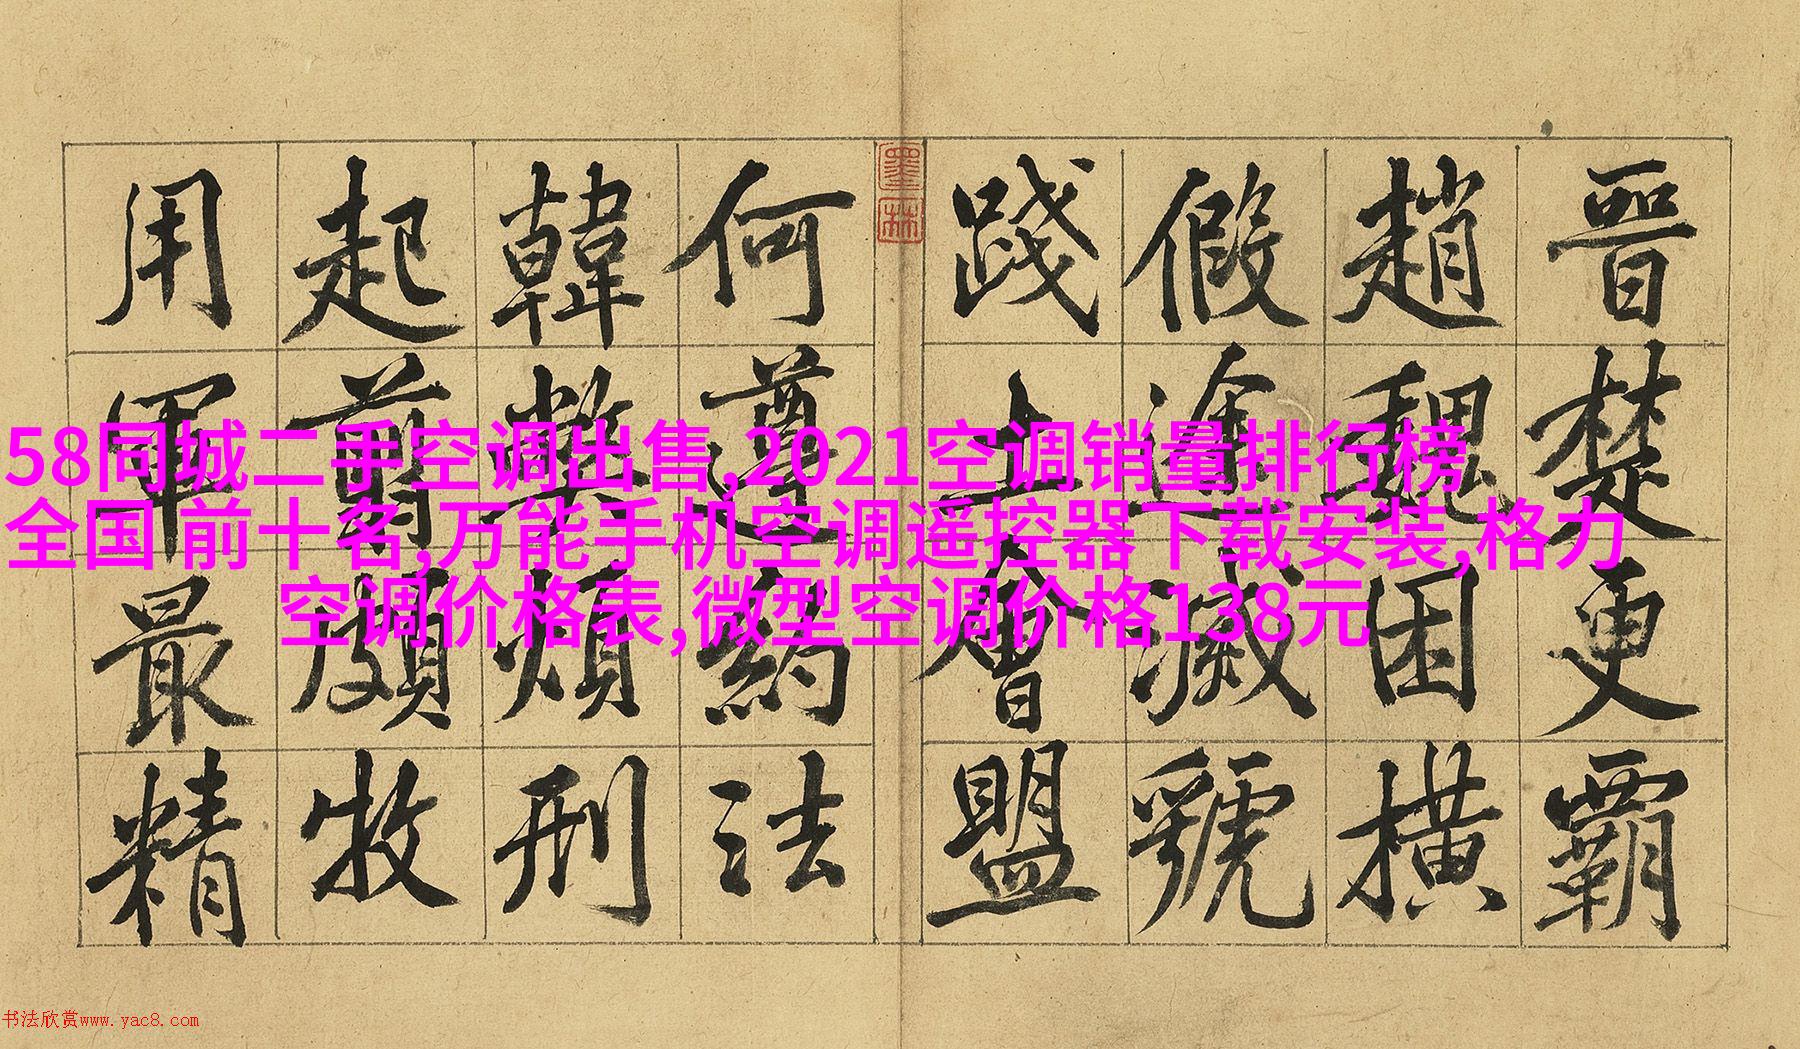 晉楚更霸
趙魏困橫
假途滅虢
踐土會盟
何遵約法
韓弊煩刑
起翦頗牧
用軍最精
墨林
58同城二手空调出售,2021空调销量排行榜
全国 前十名,万能手机空调遥控器下载安装,格力
空调价格表,微型空调价格138元
书法欣赏www.yac8.com